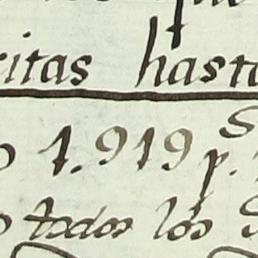 itas hasta
o 1.919 p.
o todos los S